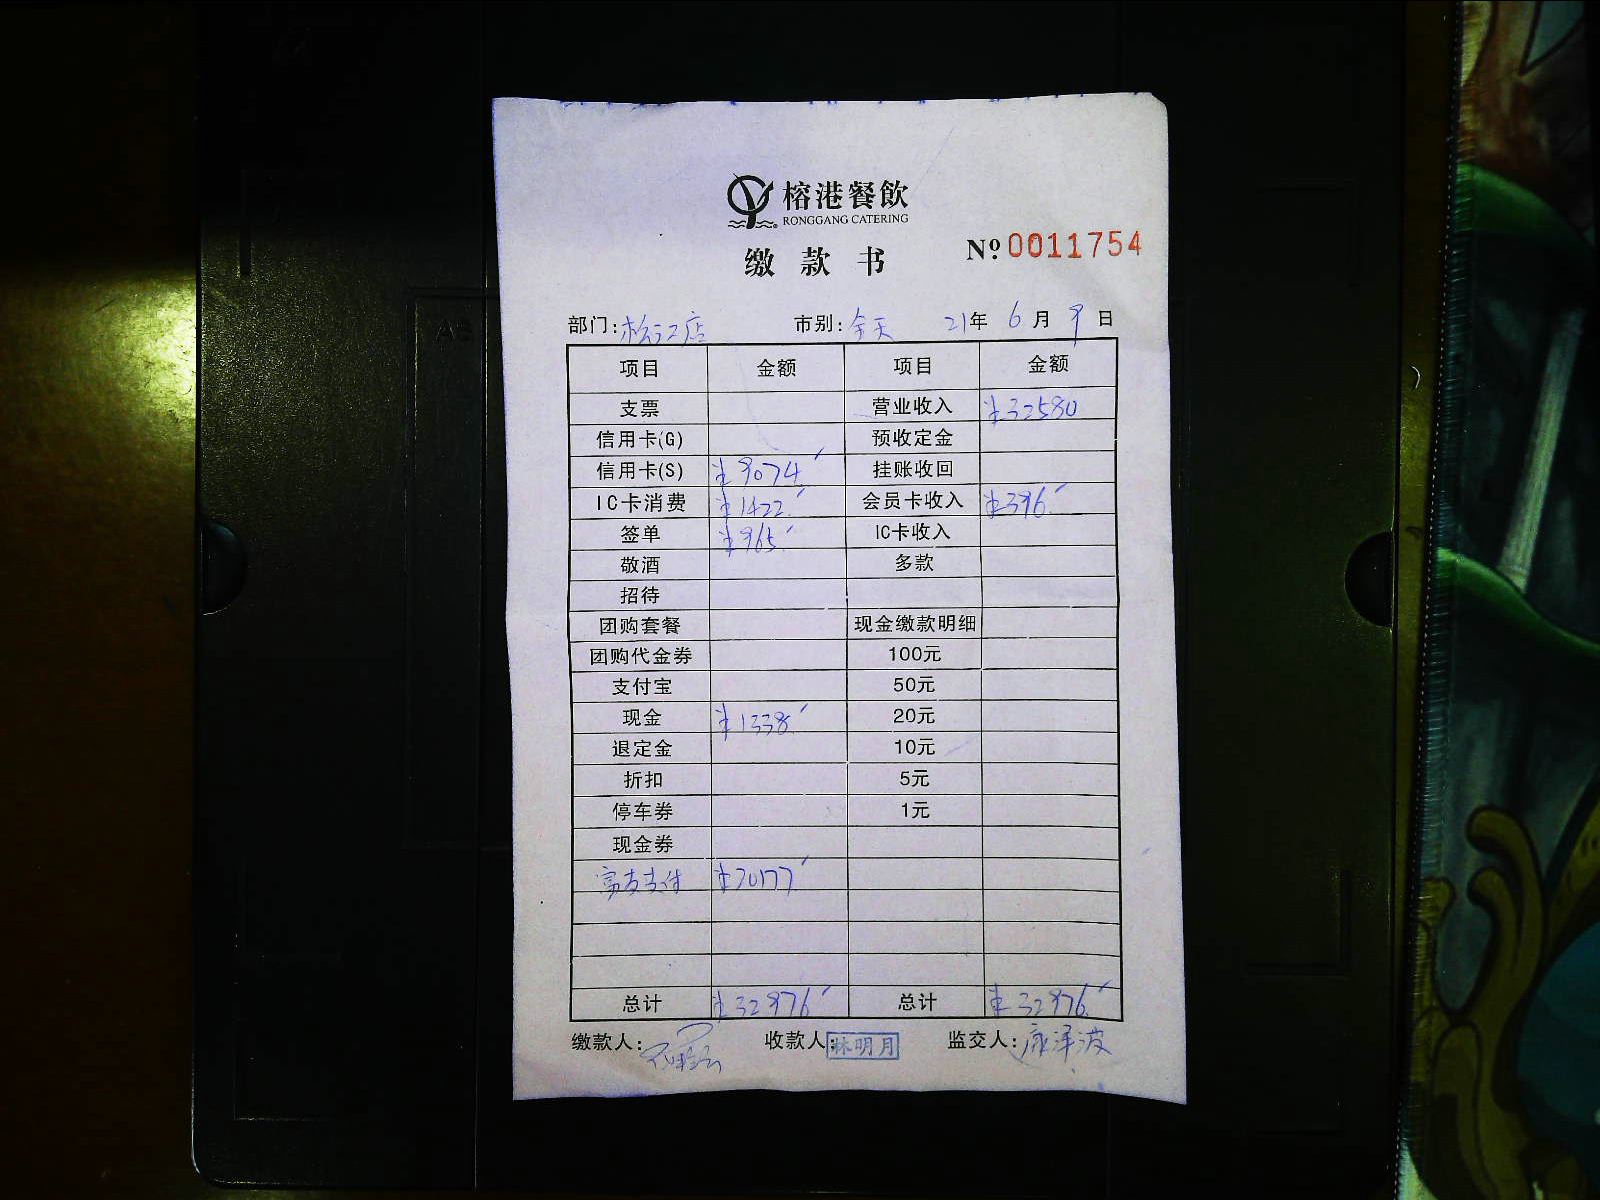 榕港餐飲
RONGGANG CATERING
缴款书 Nº 0011754
部门:松江店 市别:全天 21年 6月 9日
项目 金额 项目 金额
支票 营业收入 ¥32580
信用卡(G) 预收定金
信用卡(S) ¥9074 挂账收回
IC卡消费 ¥1422 会员卡收入 ¥396
签单 ¥965 IC卡收入
敬酒 多款
招待
团购套餐 现金缴款明细
团购代金券 100元
支付宝 50元
现金 ¥1338 20元
退定金 10元
折扣 5元
停车券 1元
现金券
富友支付 ¥20177
总计 ¥32976 总计 ¥32976
缴款人: 收款人:林明月 监交人:康泽波